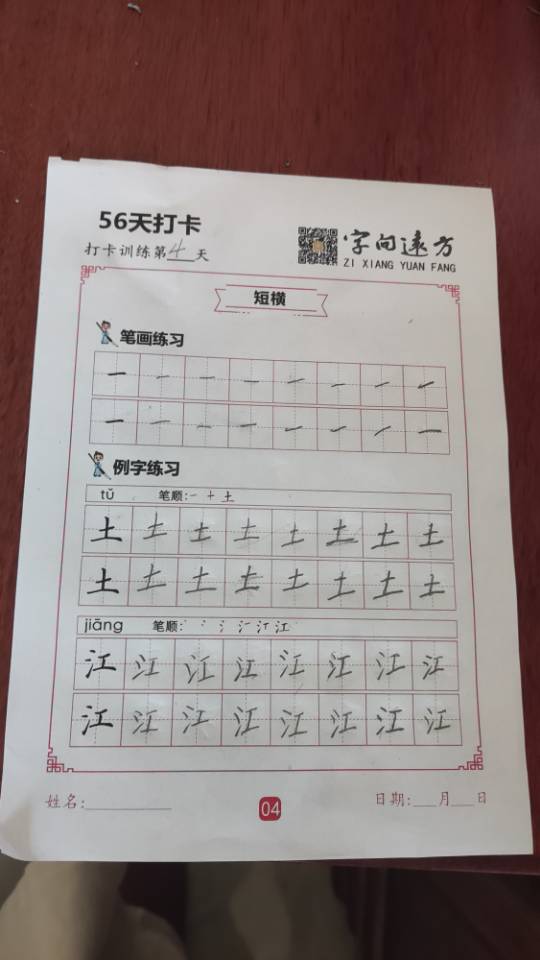 56天打卡
打卡训练第4天
字向远方
ZI XIANG YUAN FANG
短横
笔画练习
一 一 一 一 一 一 一 一
一 一 一 一 一 一 一 一
例字练习
tǔ 笔顺: 一 十 土
土 土 土 土 土 土 土 土
土 土 土 土 土 土 土 土
jiāng 笔顺: 丶 冫 氵 氵一 汀 江
江 江 江 江 江 江 江 江
江 江 江 江 江 江 江 江
姓名:
04
日期: 月 日